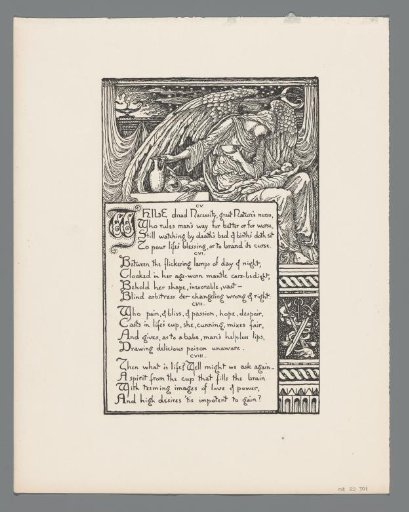 CV
WHILE dread Necessity, great Nature's nurse,
Who rules man's way for better or for worse,
Still watching by death's bed & birth's doth sit
To pour life's blessing, or to brand its curse.
CVI.
Between the flickering lamps of day & night,
Cloaked in her age-worn mantle care-bedight,
Behold her shape, inexorable, vast—
Blind arbitress o'er changeling wrong & right.
CVII.
Who pain, & bliss, & passion, hope, despair,
Casts in life's cup, she, cunning, mixes fair,
And gives, as to a babe, man's helpless lips,
Drawing delicious poison unaware.
CVIII.
Then what is life? Well might we ask again—
A spirit from the cup that fills the brain
With teeming images of love & power,
And high desires 'tis impotent to gain?